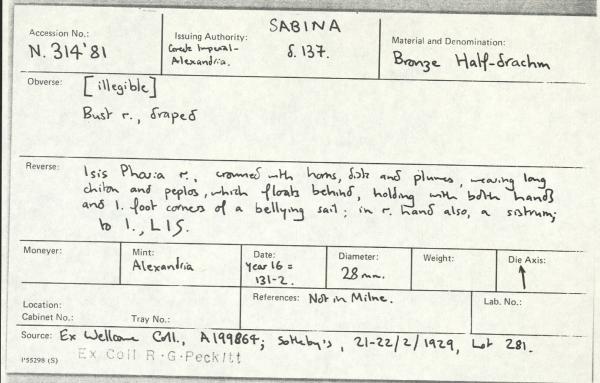 SABINA
Accession No.:
N. 314'81
Issuing Authority:
Greek Imperial-
Alexandria.
d. 137.
Material and Denomination:
Bronze Half-drachm
Obverse: [illegible]
Bust r., draped
Reverse: Isis Pharia r., crowned with horns, disk and plumes, wearing long
chiton and peplos, which floats behind, holding with both hands
and l. foot corners of a bellying sail; in r. hand also, a sistrum;
to l., LIS.
Moneyer:
Mint:
Alexandria
Date:
Year 16 =
131-2.
Diameter:
28 mm.
Weight:
Die Axis:
↑
Location:
Cabinet No.: Tray No.:
References: Not in Milne.
Lab. No.:
Source: Ex Wellcome Coll., A199864; Sotheby's, 21-22/2/1929, Lot 281.
Ex Coll R.G.Peckitt
1'55298 (S)